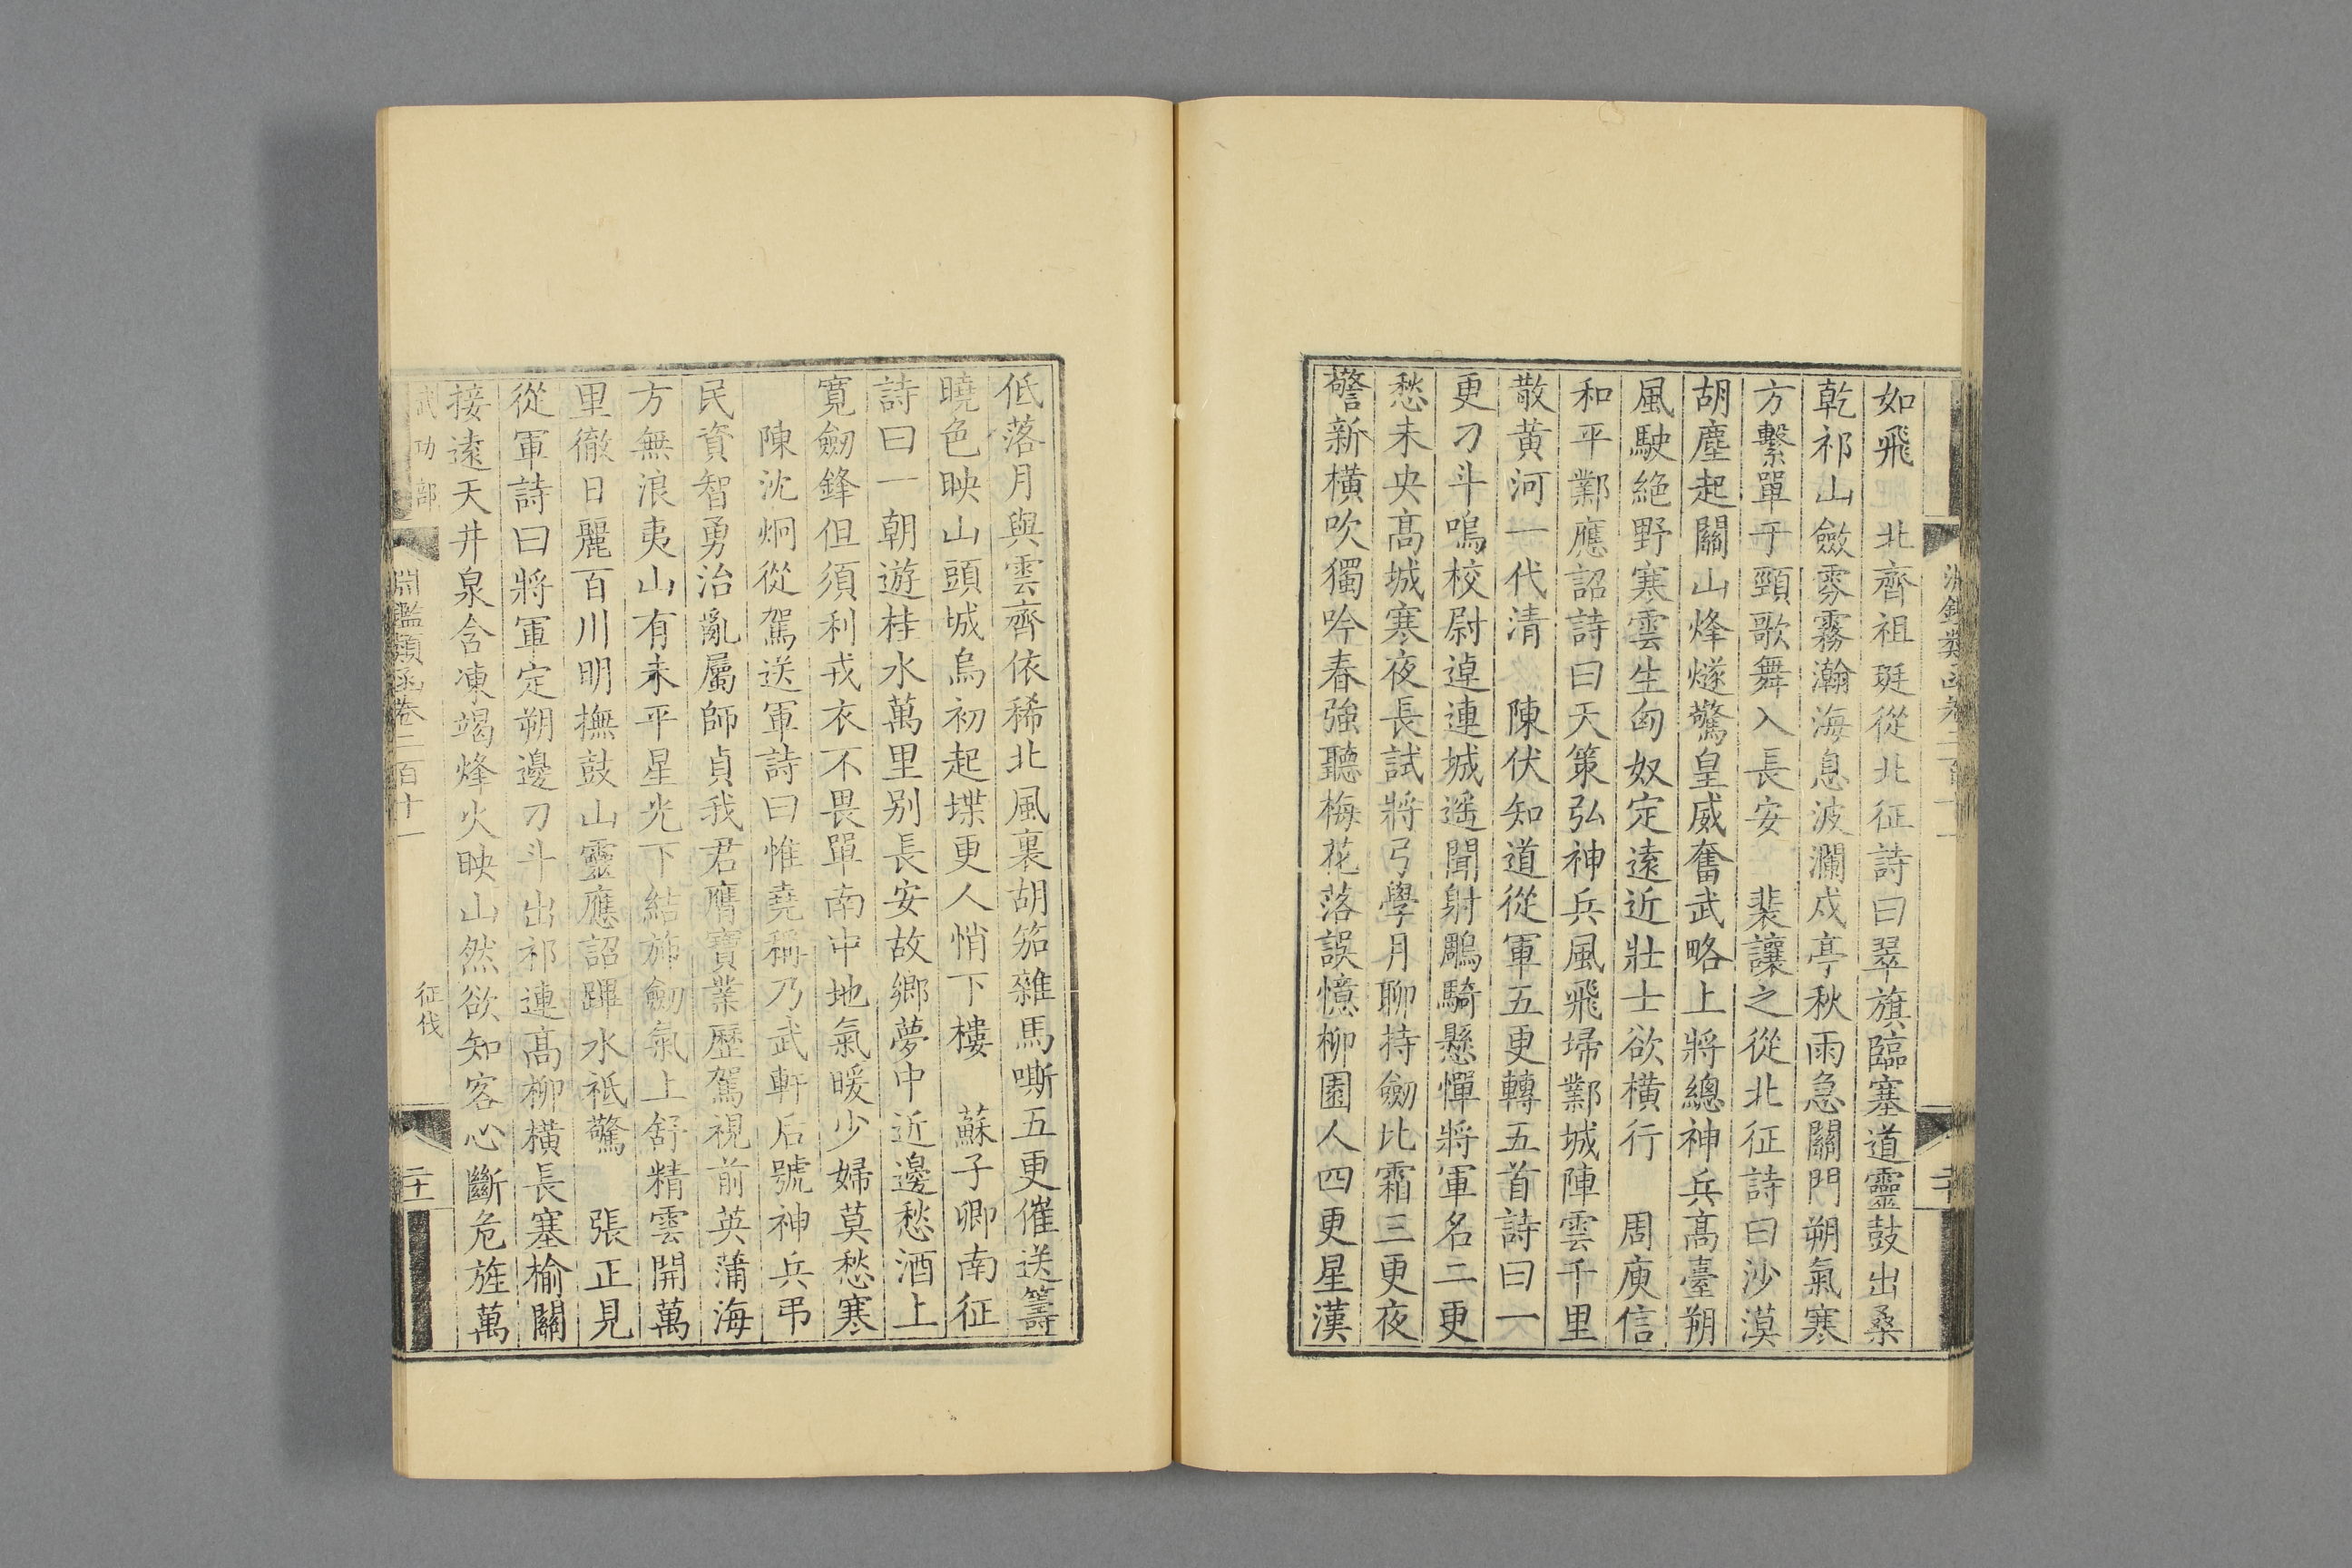 如飛　北齊祖珽從北征詩曰翠旗臨塞道靈鼓出桑
乾祁山斂雰霧瀚海息波瀾戍亭秋雨急關門朔氣寒
方繫單于頸歌舞入長安　裴讓之從北征詩曰沙漠
胡塵起關山烽燧驚皇威奮武略上將總神兵高臺朔
風駛絕野寒雲生匈奴定遠近壯士欲橫行　周庾信
和平鄴應詔詩曰天策弘神兵風飛埽鄴城陣雲千里
散黃河一代清　陳伏知道從軍五更轉五首詩曰一
更刁斗鳴校尉逴連城遥聞射鵰騎懸憚將軍名二更
愁未央高城寒夜長試將弓學月聊持劒比霜三更夜
警新橫吹獨吟春強聽梅花落誤憶柳園人四更星漢
低落月與雲齊依稀北風裏胡笳雜馬嘶五更催送籌
曉色映山頭城烏初起堞更人悄下樓　蘇子卿南征
詩曰一朝遊桂水萬里别長安故鄉夢中近邊愁酒上
寛劒鋒但須利戎衣不畏單南中地氣暖少婦莫愁寒
陳沈炯從駕送軍詩曰惟堯稱乃武軒后號神兵弔
民資智勇治亂屬師貞我君膺寶業歷駕視前英蒲海
方無浪夷山有未平星光下結斾劒氣上舒精雲開萬
里徹日麗百川明撫鼓山靈應詔蹕水祗驚　張正見
從軍詩曰將軍定朔邊刁斗出祁連高柳橫長塞榆關
接遠天井泉含凍竭烽火映山然欲知客心斷危旌萬
武功部
淵鑑類函卷二百十一
征伐
二十一